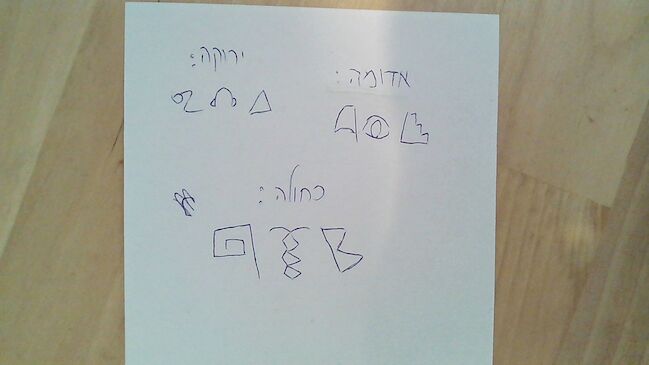 ירוקה:
אדומה:
כחולה: